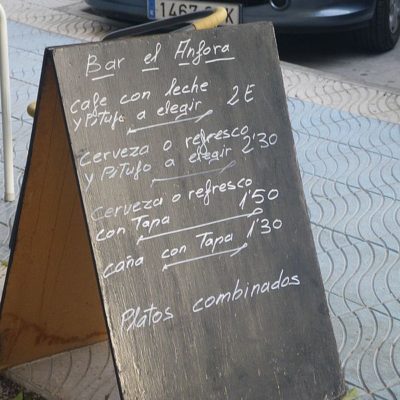 1467
Bar el Anfora
cafe con leche
y Pitufo a elegir 2E
cerveza o refresco
y Pitufo a elegir 2'30
cerveza o refresco
con Tapa 1'50
caña con Tapa 1'30
Platos combinados